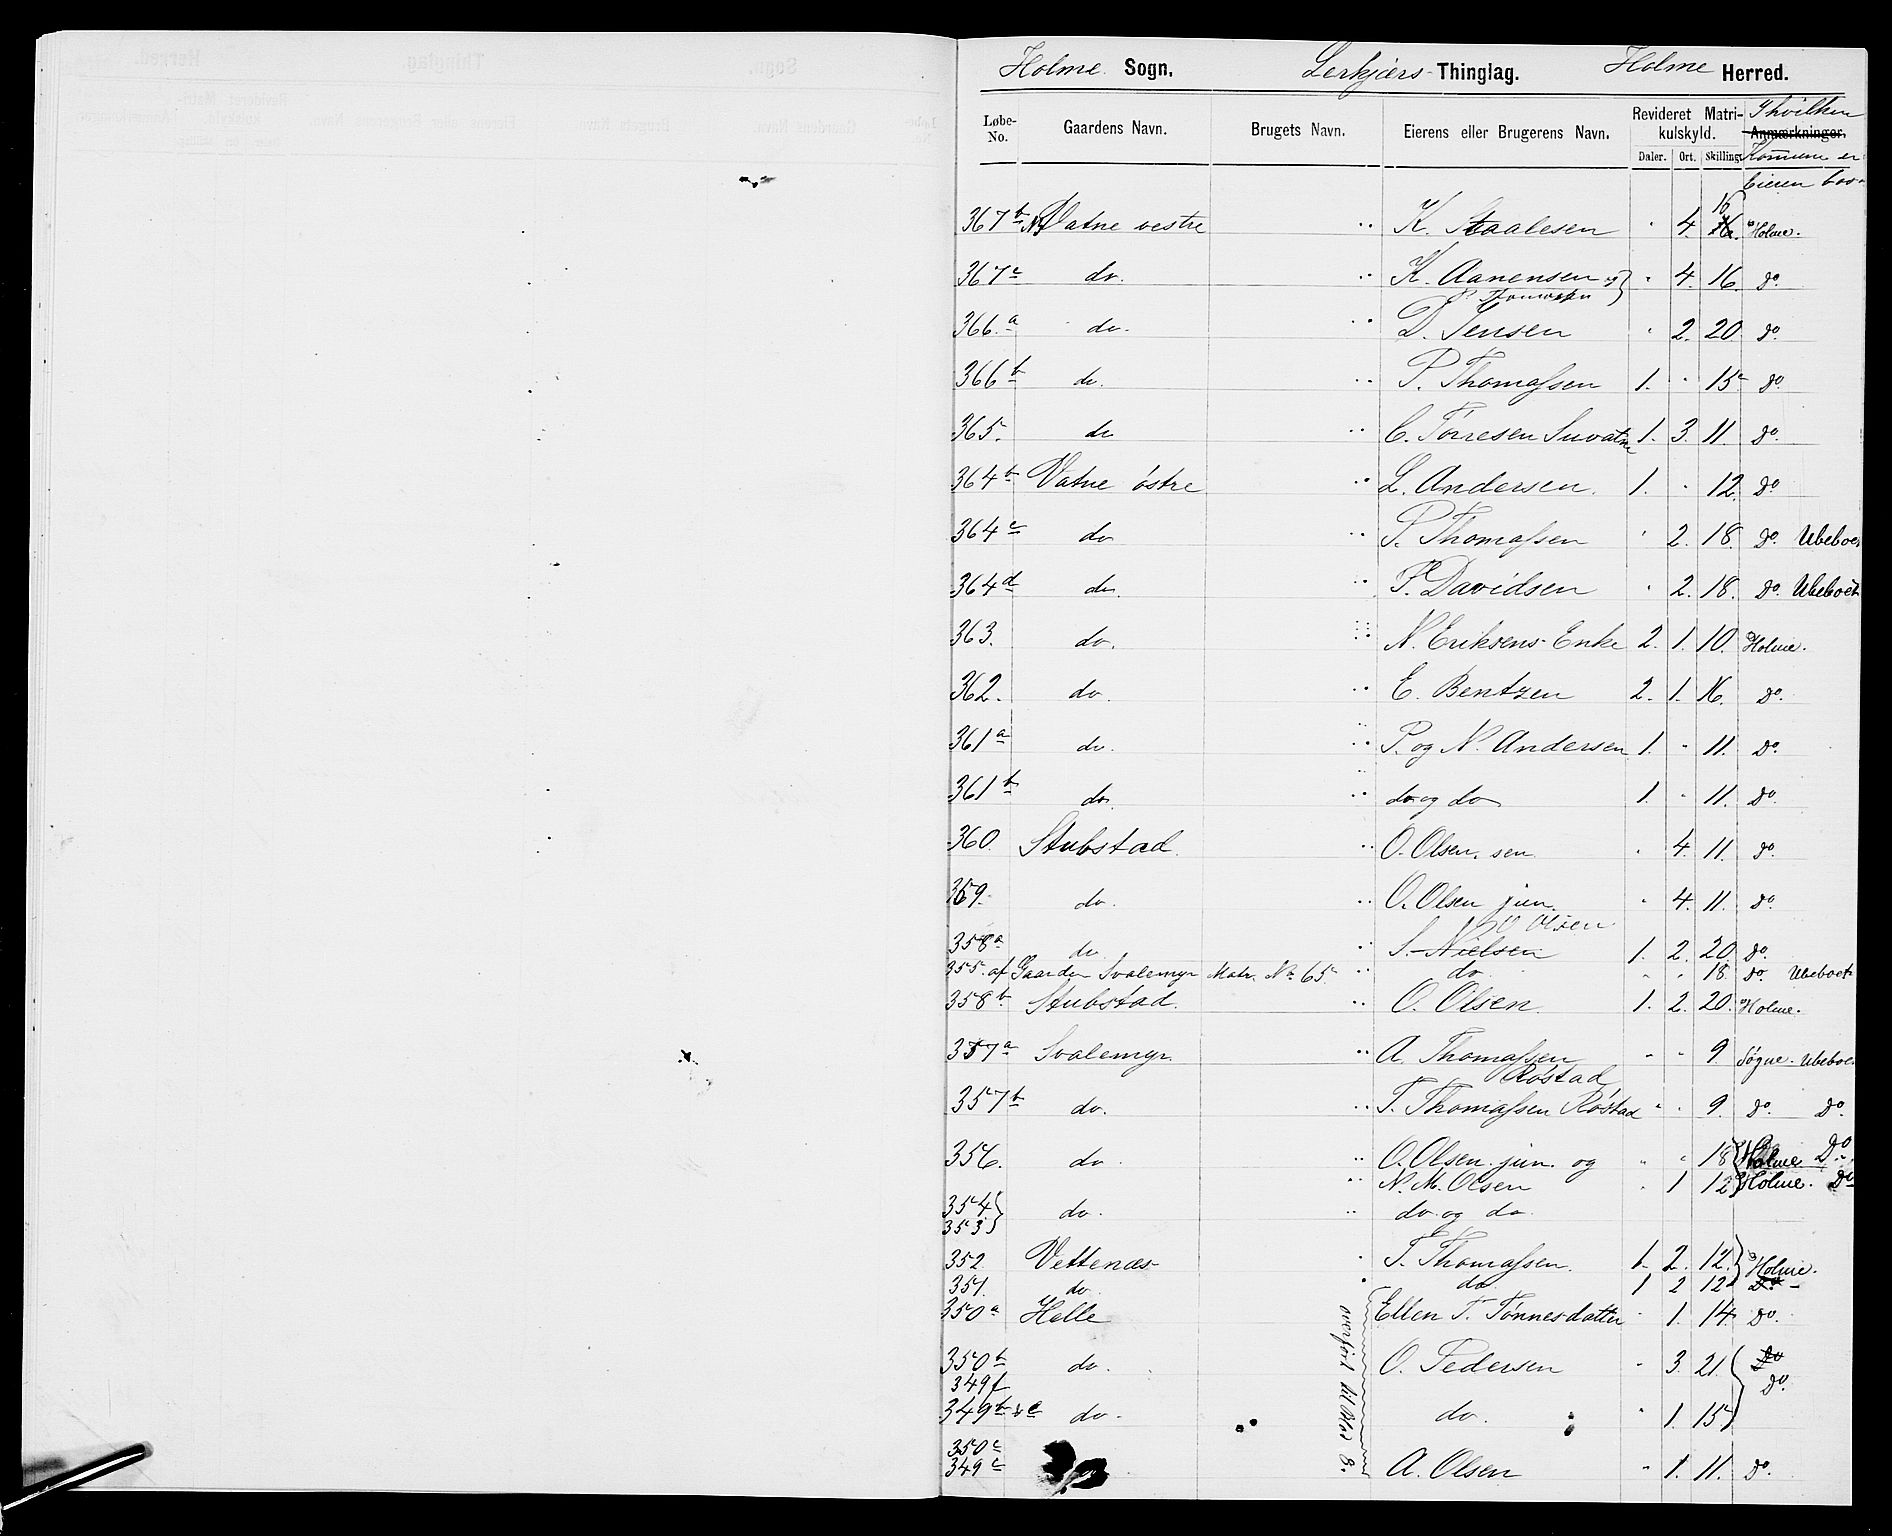 Holme Sogn. Lerkjærs Thinglag. Holme Herred.
Løbe-No. Gaardens Navn. Brugets Navn. Eierens eller Brugerens Navn. Revideret Matrikulskyld. Daler. Ort. Skilling. Anmærkninger. I hvilken Kommune er Eieren bos
367 b Vatne vestre " K. Staalesen " 4. 16 Holme.
367 c do. " K. Aanensen og " 4. 16. do.
Thomassen
366. a do. " D. Jensen " 2. 20. do.
366 b do. " P. Thomassen 1. " 15 do.
365. do " C. Tørresen Suvatne 1. 3. 11. do.
364 b Vatne østre " L. Andersen. 1. " 12. do
364 c do " P. Thomassen " 2. 18. do. Ubeboet
364 d do. " F. Davidsen " 2. 18. do. Ubeboet
363. do. " N. Eriksens Enke 2. 1. 10. Holme.
362. do. " E. Bentzen 2. 1. 16. do.
361 a do. " P. og N. Andersen 1. " 11. do.
361 b do. " do og do 1. " 11. do.
360. Stubstad " O. Olsen. sen. " 4. 11. do.
359. do. " O. Olsen jun. " 4. 11. do.
O Olsen
358 a do " S. Nielsen 1. 2. 20. do.
355. af Gaarden Svalemyr Matr. No 65 " do. " " 18. do Ubeboet
358 b Stubstad. " O. Olsen. 1. 2. 20. Holme.
357 a Svalemyr " A. Thomassen " " 9. Søgne. Ubeboet
Røstad
357 b do. " T. Thomassen Røstad " " 9. do. do.
356. do. " O. Olsen jun. og " " 18 Holme Do
" N. M. Olsen " 1 12 Holme. Do
354 do. " do og do.
353
352 Vettenæs " T. Thomassen. 1. 2. 12. Holme.
351. do. " do. 1 2 12 Do
350 a Helle Ellen T. Tønnesdatter " 1. 14. do.
350 b do. O. Pedersen " 3. 21. do
349 f do.
349 b & e do. do. " 1. 15
overført til Blad 8.
350 c
349 c A. Olsen " 1. 11. do.